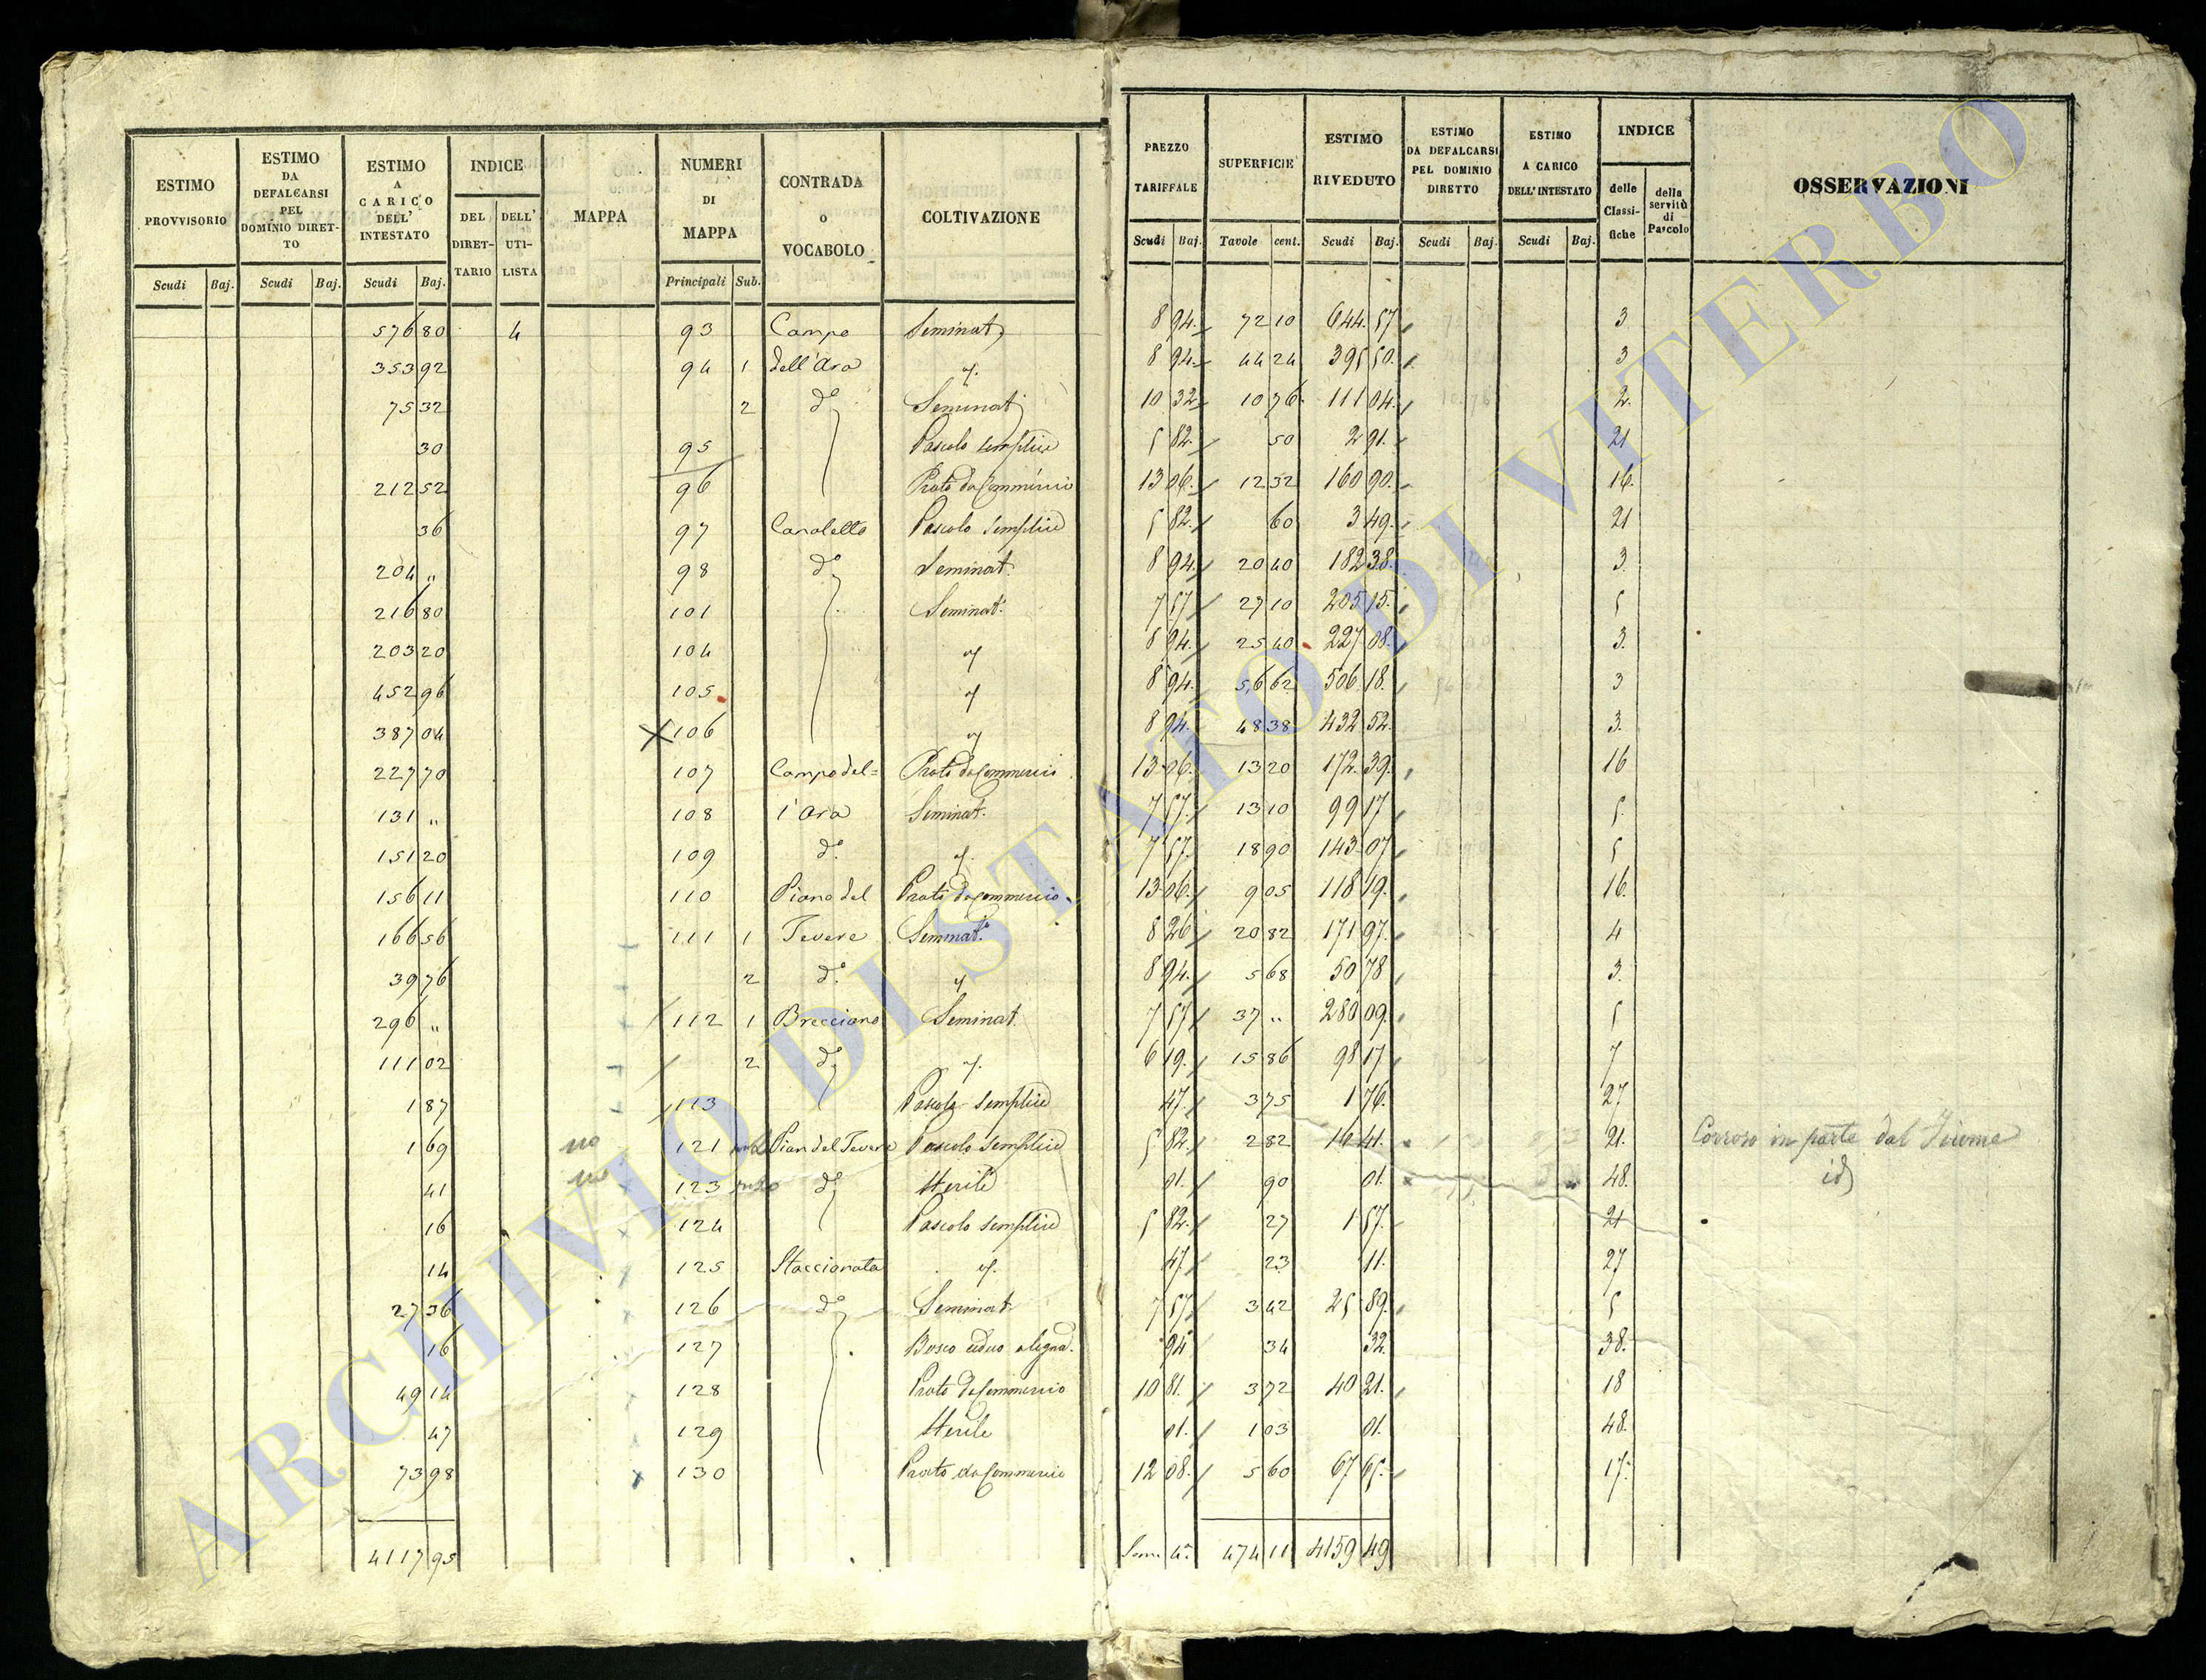 ESTIMO PROVVISORIO
ESTIMO DA DEFALCARSI PEL DOMINIO DIRETTO
ESTIMO A CARICO DELL' INTESTATO
INDICE
DEL DIRETTARIO
DELL' UTILISTA
MAPPA
NUMERI DI MAPPA
CONTRADA O VOCABOLO
COLTIVAZIONE
PREZZO TARIFFALE
SUPERFICIE
ESTIMO RIVEDUTO
ESTIMO DA DEFALCARSI PEL DOMINIO DIRETTO
ESTIMO A CARICO DELL' INTESTATO
INDICE
delle Classifiche
della servitù di Pascolo
OSSERVAZIONI
Scudi Baj. Scudi Baj. Scudi Baj. Principali Sub. Scudi Baj. Tavole cent. Scudi Baj. Scudi Baj. Scudi Baj.
576 80 4 93 Campo Seminat. 8 94 72 10 644 57 3
353 92 94 1 dell'Ara " 8 94 44 24 395 50 3
75 32 2 do Seminat. 10 32 10 76 111 04 2
30 95 Pascolo semplice 5 82 50 2 91 21
212 52 96 Prato da Commercio 13 06 12 32 160 90 16
36 97 Canaletto Pascolo semplice 5 82 60 3 49 21
204 " 98 do Seminat. 8 94 20 40 182 38 3
216 80 101 Seminat. 7 57 27 10 205 15 5
203 20 104 " 8 94 25 40 227 08 3
452 96 105 " 8 94 56 62 506 18 3
387 04 106 " 8 94 48 38 432 52 3
227 70 107 Campo del= Prato da Commercio 13 06 13 20 172 39 16
131 " 108 l'Ara Seminat. 7 57 13 10 99 17 5
151 20 109 do " 7 57 18 90 143 07 5
156 11 110 Piano del Prato da Commercio 13 06 9 05 118 19 16
166 56 111 1 Tevere Seminat. 8 26 20 82 171 97 4
39 76 2 do " 8 94 5 68 50 78 3
296 " 112 1 Brecciano Seminat. 7 57 37 " 280 09 5
111 02 2 do " 6 19 15 86 98 17 7
1 87 113 Pascolo semplice 47 3 75 1 76 27
1 69 no 121 Pian del Tevere Pascolo semplice 5 82 2 82 16 41 21 Corroso in parte dal Fiume
41 no 123 do Sterile 01 90 01 48 id
16 124 Pascolo semplice 5 82 27 1 57 21
14 125 Staccionata " 47 23 11 27
27 36 126 do Seminat. 7 57 3 42 25 89 5
16 127 Bosco ceduo a legna 94 34 32 38
49 14 128 Prato da Commercio 10 81 3 72 40 21 18
47 129 Sterile 01 1 03 01 48
73 98 130 Prato da Commercio 12 08 5 60 67 65 17
4117 95 474 11 4159 49
ARCHIVIO DI STATO DI VITERBO